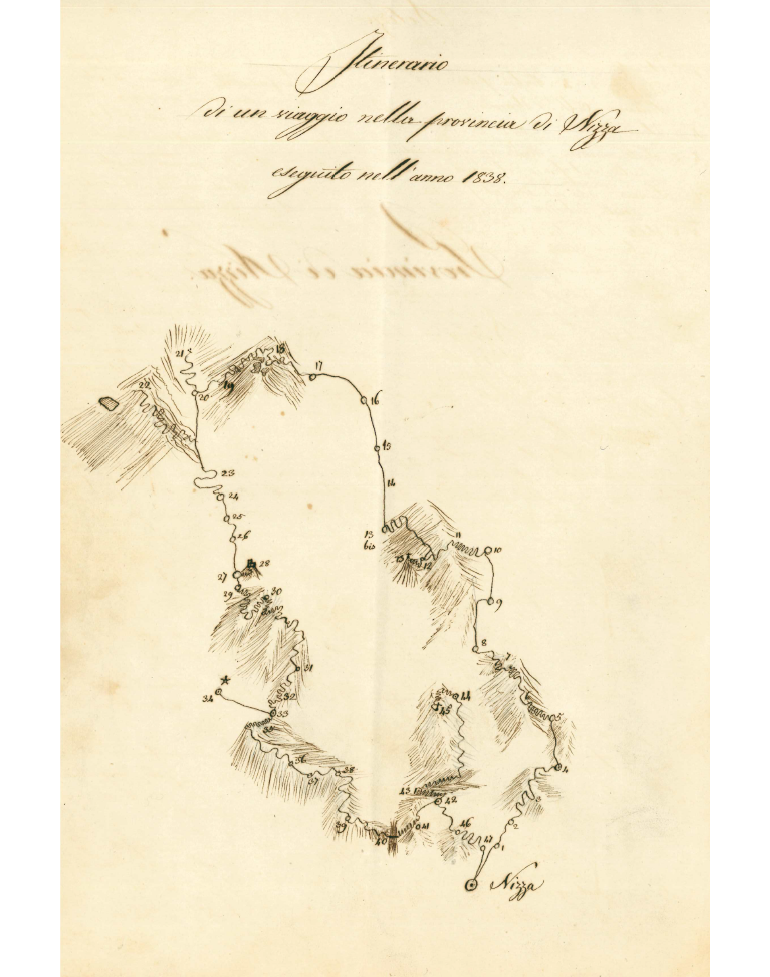 Itinerario
di un viaggio nella provincia di Nizza
eseguito nell'anno 1838.
Provincia di Nizza.
18
21
17
19
22
20
16
15
23
14
24
25
13
bis
11
26
10
12
28
27
29
30
9
8
7
31
6
34
32
44
45
33
5
35
36
4
37
38
43
42
3
39
41
46
2
40
47
1
Nizza